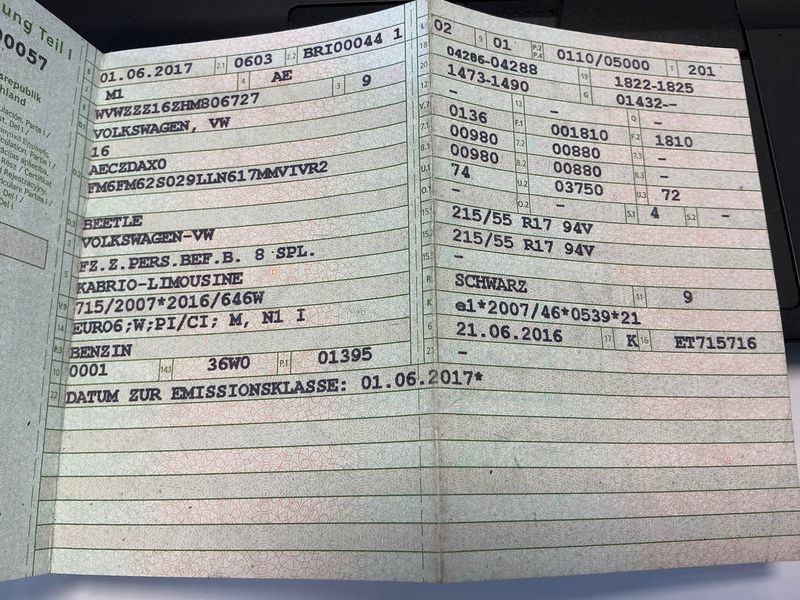 ung Teil I
00057
srepublik
hland
B 01.06.2017 2.1 0603 2.2 BRI00044 1
J M1 4 AE 3 9
WVWZZZ16ZHM806727
VOLKSWAGEN, VW
16
D.2 AECZDAX0
FM6FM62S029LLN617MMVIVR2
D.3 BEETLE
2 VOLKSWAGEN-VW
FZ.Z.PERS.BEF.B. 8 SPL.
5 KABRIO-LIMOUSINE
V.9 715/2007*2016/646W
14 EURO6;W;PI/CI; M, N1 I
P.3 BENZIN
10 0001 14.1 36W0 P.1 01395
22 DATUM ZUR EMISSIONSKLASSE: 01.06.2017*
L 02 9 01 P.2 P.4 0110/05000 T 201
18 04286-04288 19 1822-1825
20 1473-1490 G 01432-–
12 – 13 – Q –
V.7 0136 F.1 001810 F.2 1810
7.1 00980 7.2 00880 7.3 –
8.1 00980 8.2 00880 8.3 –
U.1 74 U.2 03750 U.3 72
O.1 – O.2 – S.1 4 S.2 –
15.1 215/55 R17 94V
15.2 215/55 R17 94V
15.3 –
R SCHWARZ 11 9
K e1*2007/46*0539*21
6 21.06.2016 17 K 16 ET715716
21 –